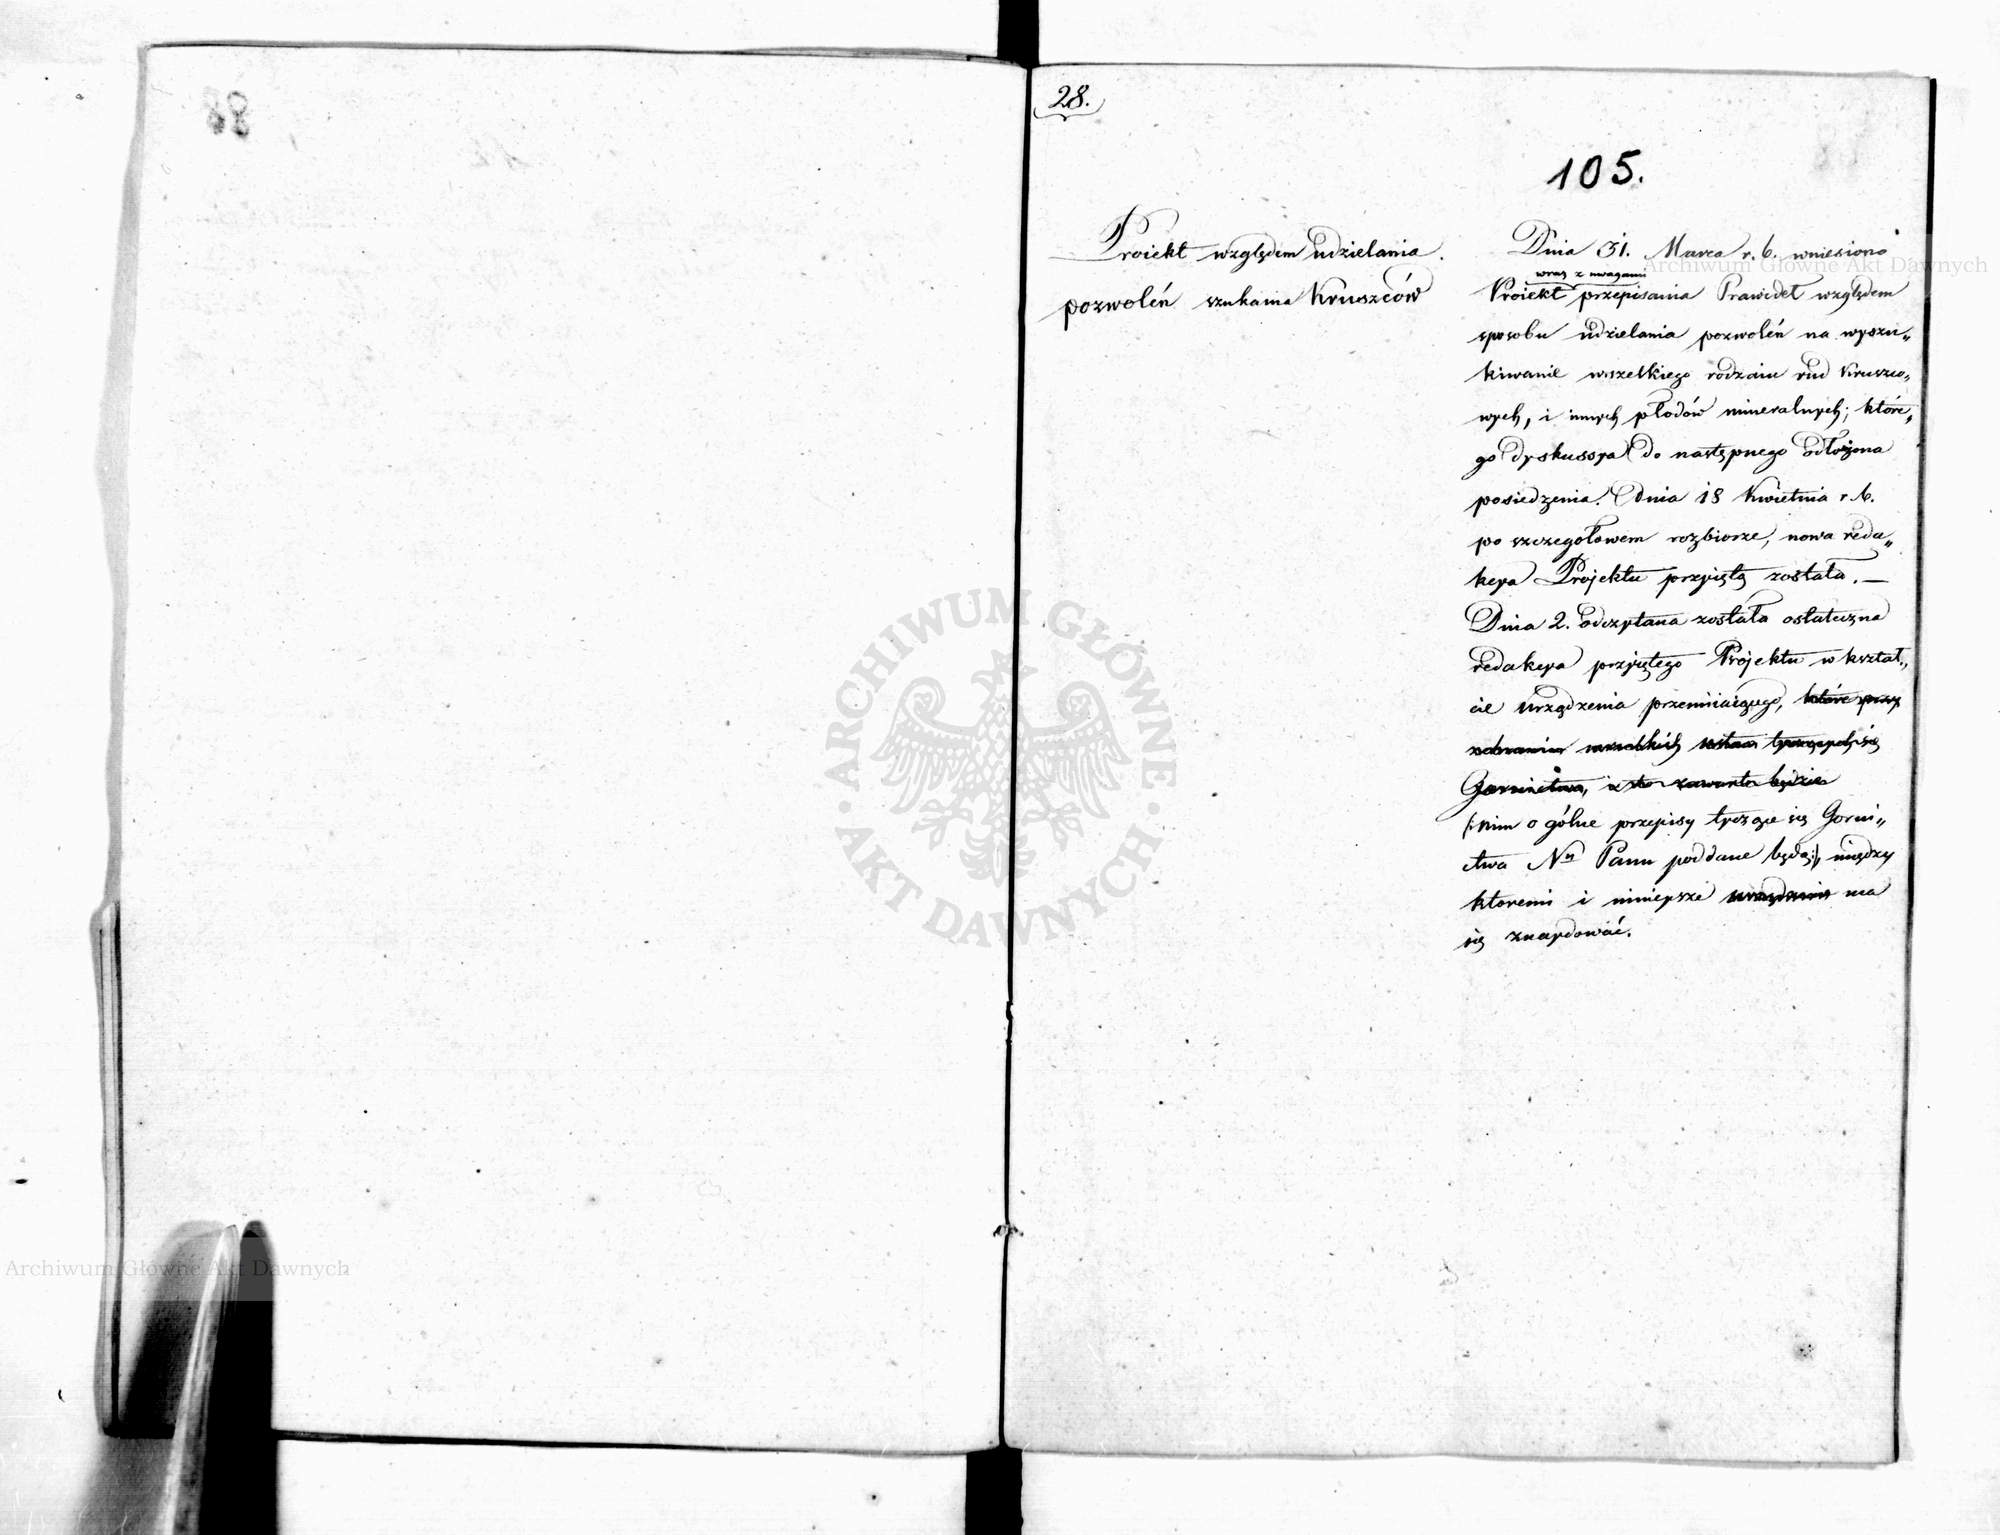 28.
105.
Proiekt względem udzielania
pozwoleń szukania Kruszców
Dnia 31. Marca r. b. wniesiono
wraz z uwagami
Proiekt przepisania Prawideł względem
sposobu udzielania pozwoleń na wyszu„
kiwanie wszelkiego rodzaiu rud Kruszco„
wych, i innych płodów mineralnych; które„
go dyskussya do następnego odłożona
posiedzenia. Dnia 18 Kwietnia r. b.
po szczegołowem rozbiorze, nowa reda„
kcya Projektu przyiętą została. —
Dnia 2. odczytana została ostateczna
redakcya przyiętego Projektu w kształ„
cie urządzenia przemiiaiącego, które przy
zebraniu wszelkich ustaw tyczących się
Gornictwa, w to zawarte będzie
/: nim ogólne przepisy tyczące się Gorni„
ctwa Nu Panu poddane będą :/, między
ktoremi i ninieysze urządzenie ma
się znaydować.
ARCHIWUM GŁÓWNE
AKT DAWNYCH
Archiwum Główne Akt Dawnych
Archiwum Główne Akt Dawnych